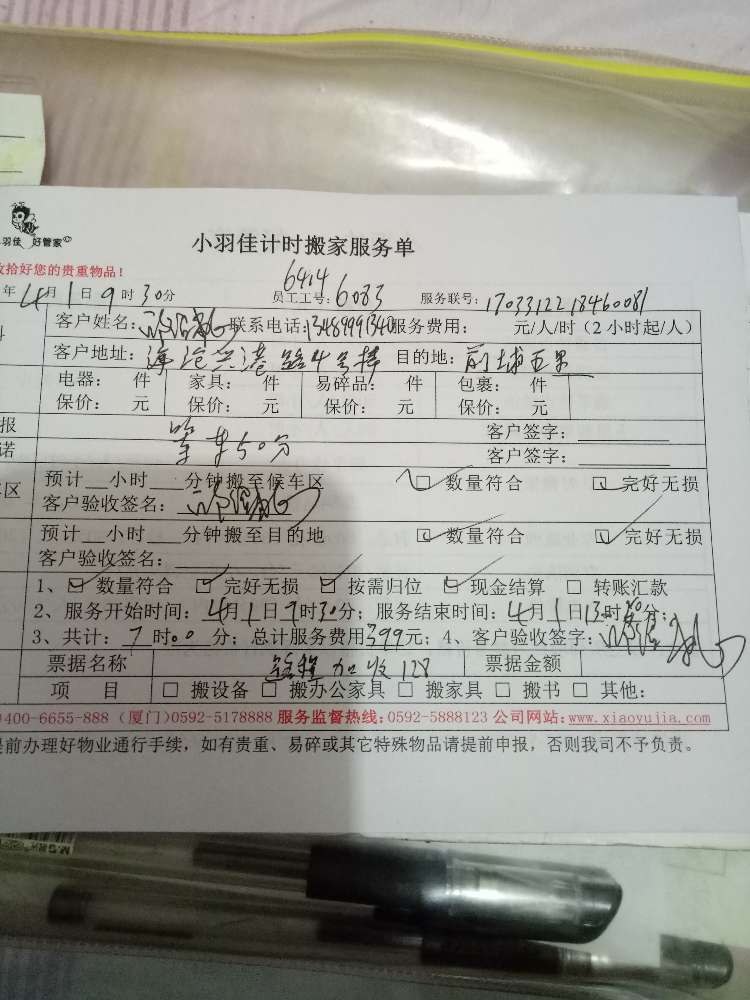 羽佳 好管家
小羽佳计时搬家服务单
收拾好您的贵重物品！
6414
年4月1日9时30分 员工工号：6083 服务联号：1703312218460081
客户姓名： 联系电话：13489991340 服务费用： 元/人/时（2小时起/人）
客户地址：海沧兴港路4号楼 目的地：前埔
电器： 件 家具： 件 易碎品： 件 包裹： 件
保价： 元 保价： 元 保价： 元 保价： 元
报 等车50分 客户签字：
诺 客户签字：
区 预计__小时___分钟搬至候车区 ☑ 数量符合 ☑ 完好无损
客户验收签名：
预计__小时___分钟搬至目的地 ☑ 数量符合 ☑ 完好无损
客户验收签名：
1、☑ 数量符合 ☑ 完好无损 ☑ 按需归位 ☑ 现金结算 □ 转账汇款
2、服务开始时间：4月1日9时30分；服务结束时间：4月1日13时 分；
3、共计：7时00分；总计服务费用399元；4、客户验收签字：
票据名称 加收128 票据金额
项 目 □ 搬设备 □ 搬办公家具 □ 搬家具 □ 搬书 □ 其他：
400-6655-888（厦门）0592-5178888 服务监督热线：0592-5888123 公司网站：www.xiaoyujia.com
提前办理好物业通行手续，如有贵重、易碎或其它特殊物品请提前申报，否则我司不予负责。
M&G